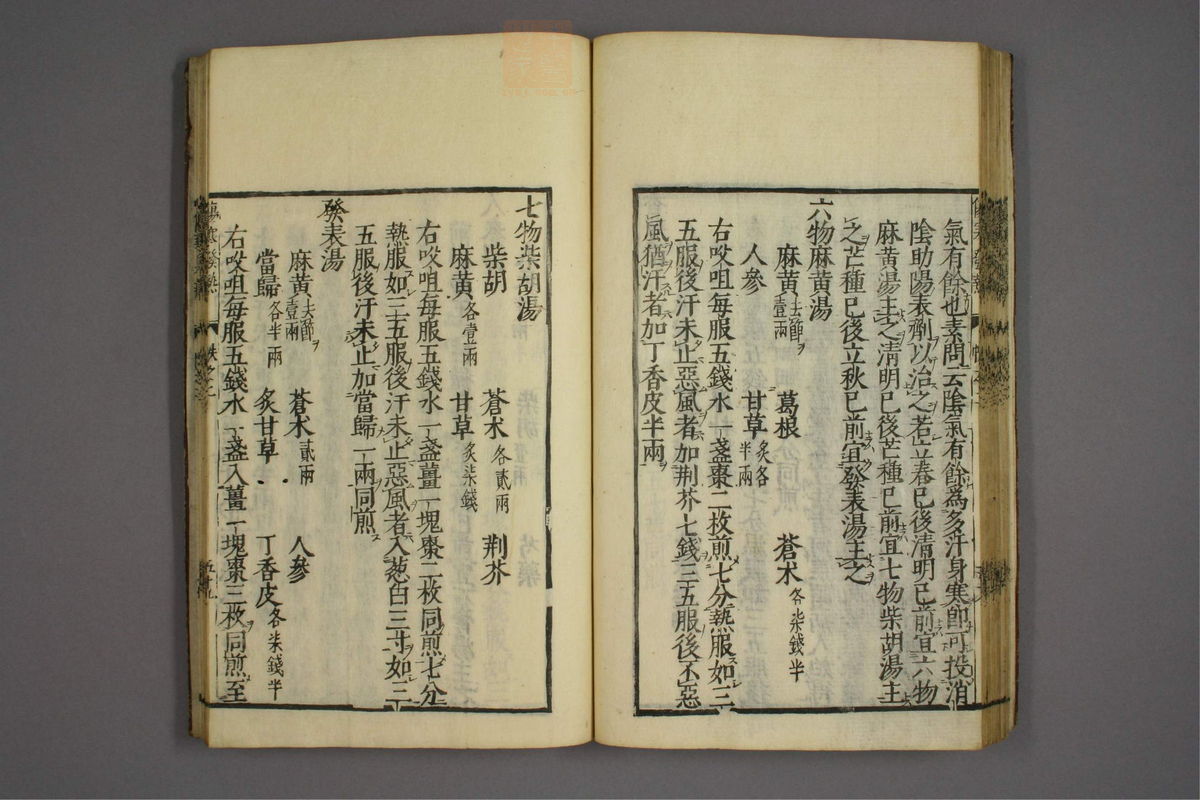 氣有餘也素問云陰氣有餘爲多汗身寒即可投消
陰助陽表劑以治之若立春已後清明已前宜六物
麻黄湯主之清明已後芒種已前宜七物柴胡湯主
之芒種已後立秋已前宜發表湯主之
六物麻黄湯
麻黄去節ヲ壹兩 葛根 蒼术各柒錢半
人參 甘草炙各半兩
右㕮咀每服五錢水一盞棗二枚煎七分熱服如三
五服後汗未止惡風者加荆芥七錢三五服後不惡
風猶汗者加丁香皮半兩
七物柴胡湯
柴胡 蒼术各貳兩 荆芥
麻黄各壹兩 甘草炙柒錢
右㕮咀每服五錢水一盞薑一塊棗二枚同煎七分
熱服如三五服後汗未止惡風者入葱白三寸如三
五服後汗未止加當歸一兩同煎
發表湯
麻黄去節ヲ壹兩 蒼术貳兩 人參
當歸各半兩 炙甘草 丁香皮各柒錢半
右㕮咀每服五錢水一盞入薑一塊棗三枚同煎至